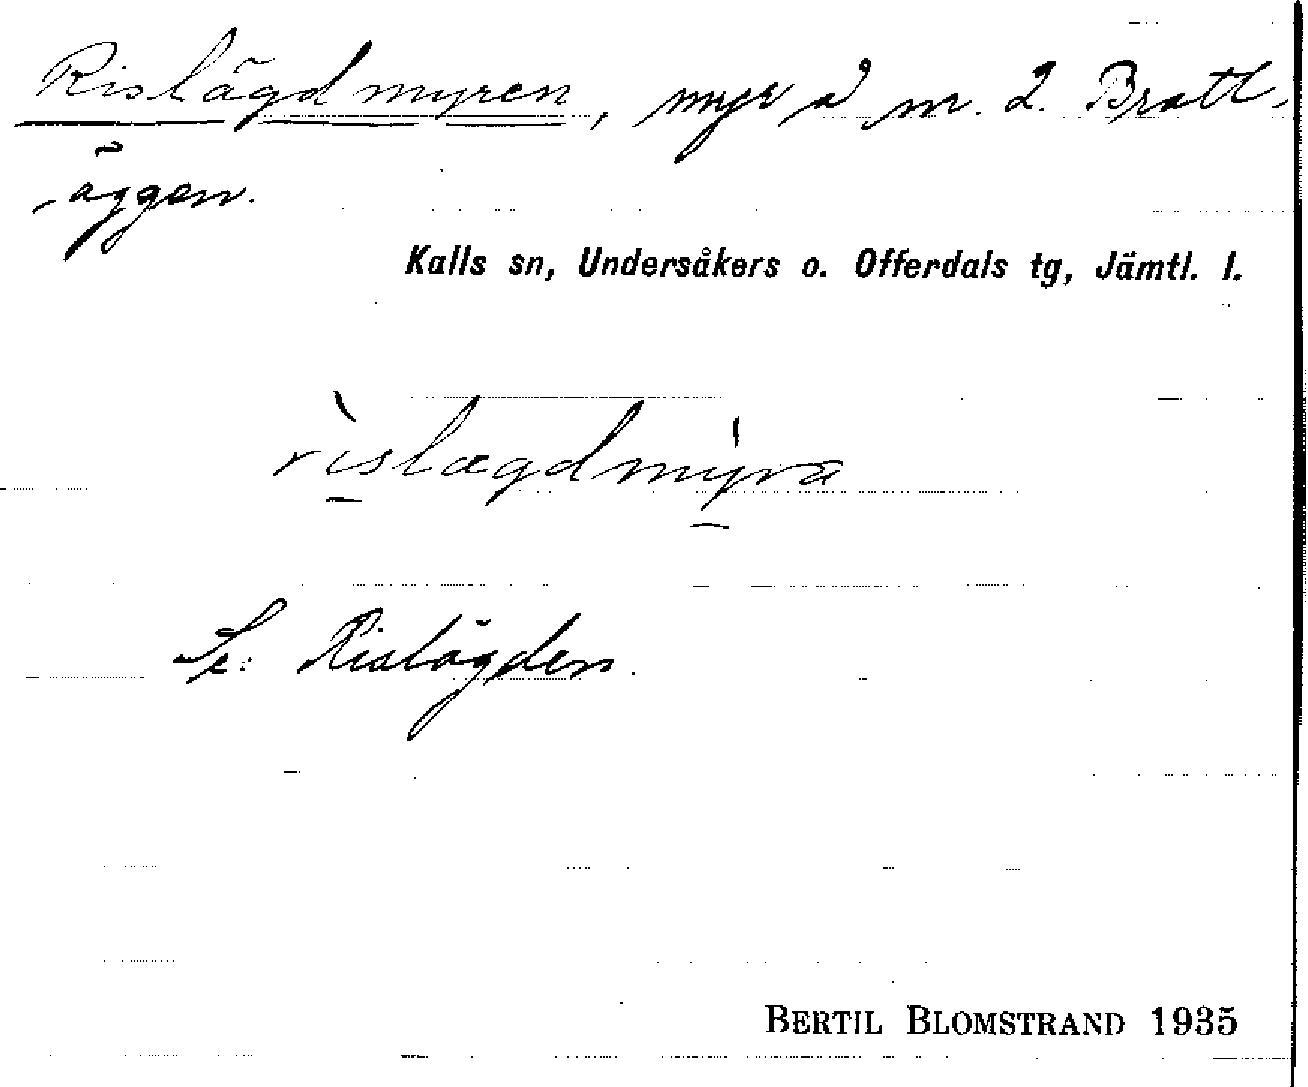 Rislägdmyren, myr å nr. 2. Bratt-
äggen.
Kalls sn, Undersåkers o. Offerdals tg, Jämtl. l.
rìslægdmy̍ra
Se: Rislägden.
BERTIL BLOMSTRAND 1935